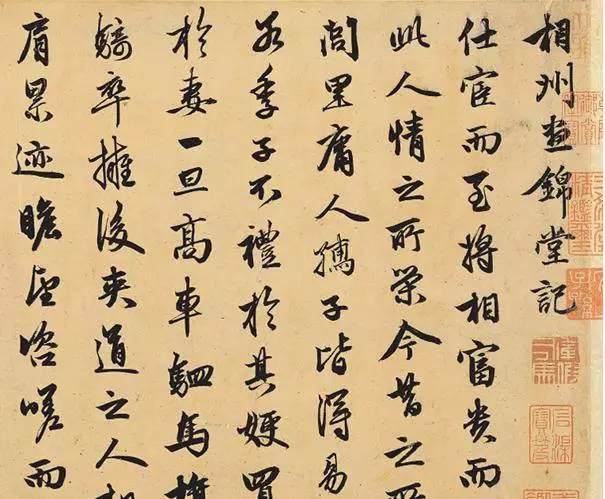 相州晝錦堂記
仕宦而至將相富貴而
此人情之所榮今昔之所
閭里庸人孺子皆得易
若季子不禮於其嫂買
於妻一旦高車駟馬旗
騎卒擁後夾道之人相
肩累迹瞻望咨嗟而